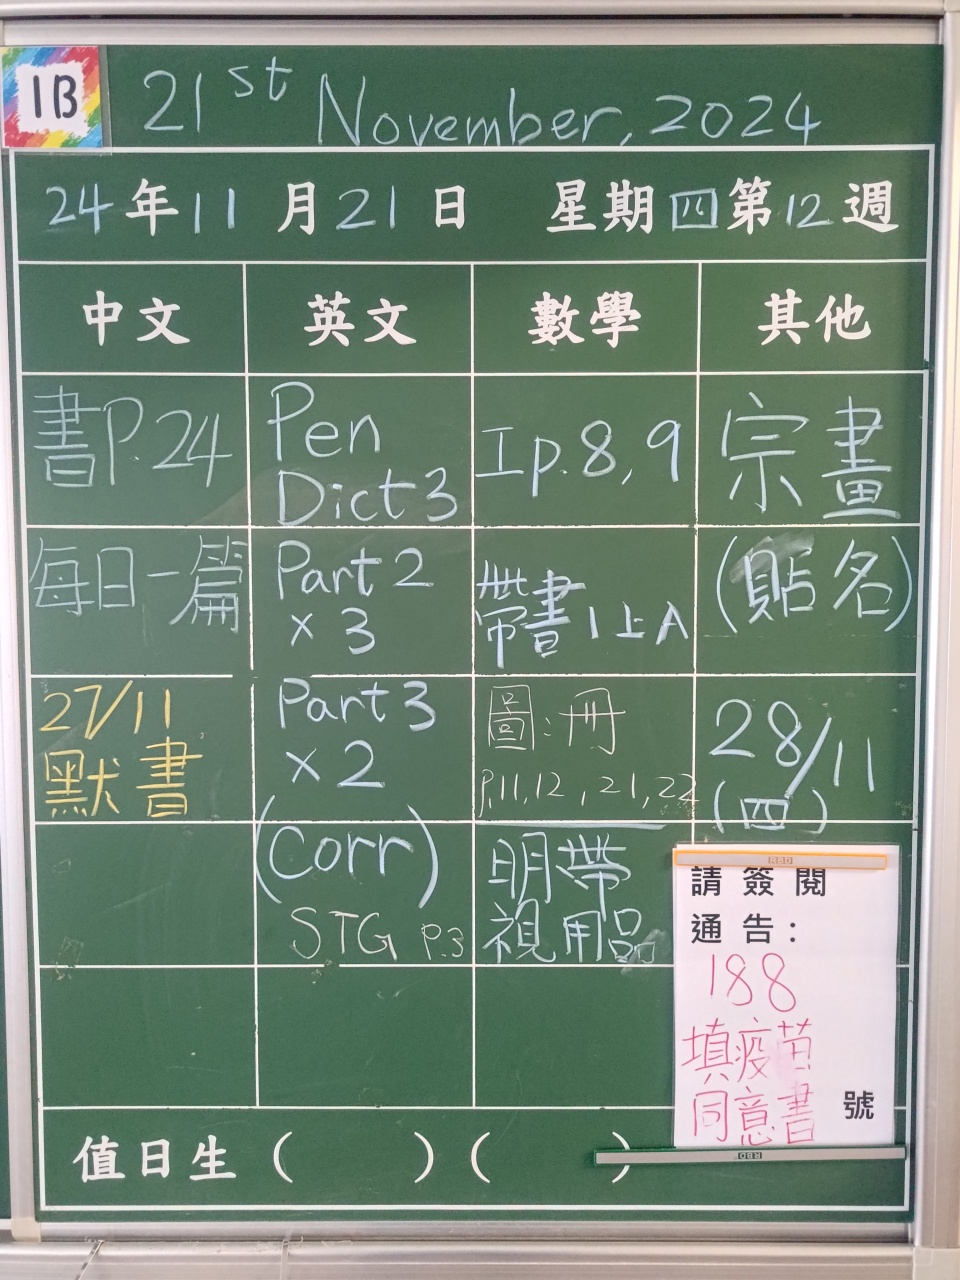 1B
21st November, 2024
24年11月21日 星期四第12週
中文
英文
數學
其他
書P.24
每日一篇
27/11
默書
Pen
Dict 3
Part 2
x 3
Part 3
x 2
(Corr)
STG P.3
工p.8,9
帶書1上A
圖:冊
P.11,12,21,22
明帶
視用品
宗畫
(貼名)
28/11
(四)
請簽閱
通告:
188
填疫苗
同意書
號
值日生( )( )
RBD
RBD